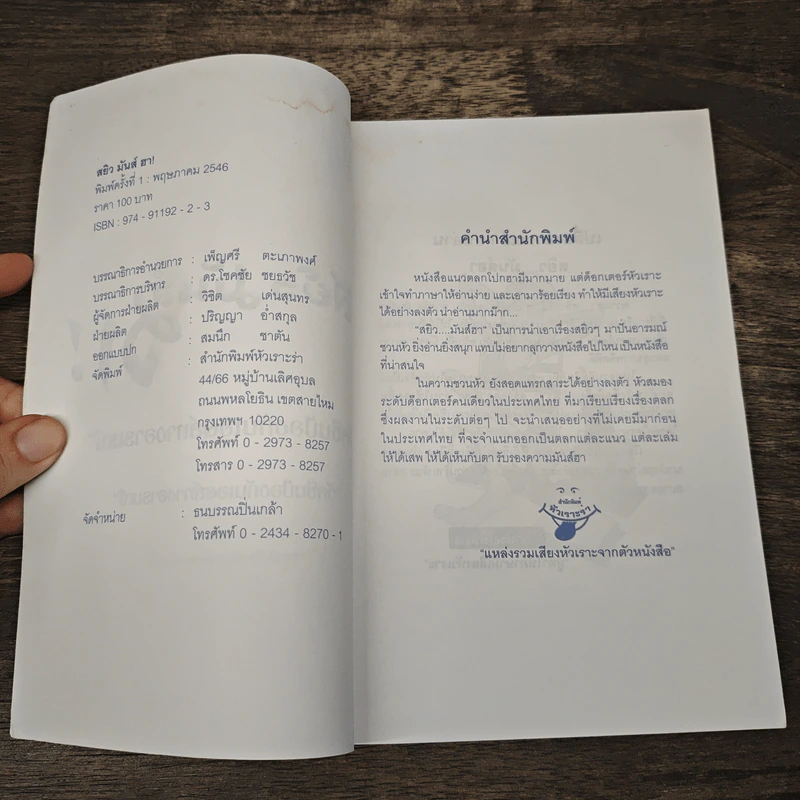 สยิว มันส์ ฮา!
พิมพ์ครั้งที่ 1 : พฤษภาคม 2546
ราคา 100 บาท
ISBN : 974 - 91192 - 2 - 3
บรรณาธิการอำนวยการ : เพ็ญศรี ตะเภาพงศ์
บรรณาธิการบริหาร : ดร.โชคชัย ชยธวัช
ผู้จัดการฝ่ายผลิต : วิชิต เด่นสุนทร
ฝ่ายผลิต : ปริญญา อ่ำสกุล
ออกแบบปก : สมนึก ชาตัน
จัดพิมพ์ : สำนักพิมพ์หัวเราะร่า
44/66 หมู่บ้านเลิศอุบล
ถนนพหลโยธิน เขตสายไหม
กรุงเทพฯ 10220
โทรศัพท์ 0 - 2973 - 8257
โทรสาร 0 - 2973 - 8257
จัดจำหน่าย : ธนบรรณปิ่นเกล้า
โทรศัพท์ 0 - 2434 - 8270 - 1
คำนำสำนักพิมพ์
หนังสือแนวตลกโปกฮามีมากมาย แต่ด็อกเตอร์หัวเราะ
เข้าใจทำภาษาให้อ่านง่าย และเอามาร้อยเรียง ทำให้มีเสียงหัวเราะ
ได้อย่างลงตัว น่าอ่านมากม๊าก...
"สยิว....มันส์ฮา" เป็นการนำเอาเรื่องสยิวๆ มาปั่นอารมณ์
ชวนหัว ยิ่งอ่านยิ่งสนุก แทบไม่อยากลุกวางหนังสือไปไหน เป็นหนังสือ
ที่น่าสนใจ
ในความชวนหัว ยังสอดแทรกสาระได้อย่างลงตัว หัวสมอง
ระดับด๊อกเตอร์คนเดียวในประเทศไทย ที่มาเรียบเรียงเรื่องตลก
ซึ่งผลงานในระดับต่อๆ ไป จะนำเสนออย่างที่ไม่เคยมีมาก่อน
ในประเทศไทย ที่จะจำแนกออกเป็นตลกแต่ละแนว แต่ละเล่ม
ให้ได้เสพ ให้ได้เห็นกับตา รับรองความมันส์ฮา
สำนักพิมพ์
หัวเราะร่า
"แหล่งรวมเสียงหัวเราะจากตัวหนังสือ"